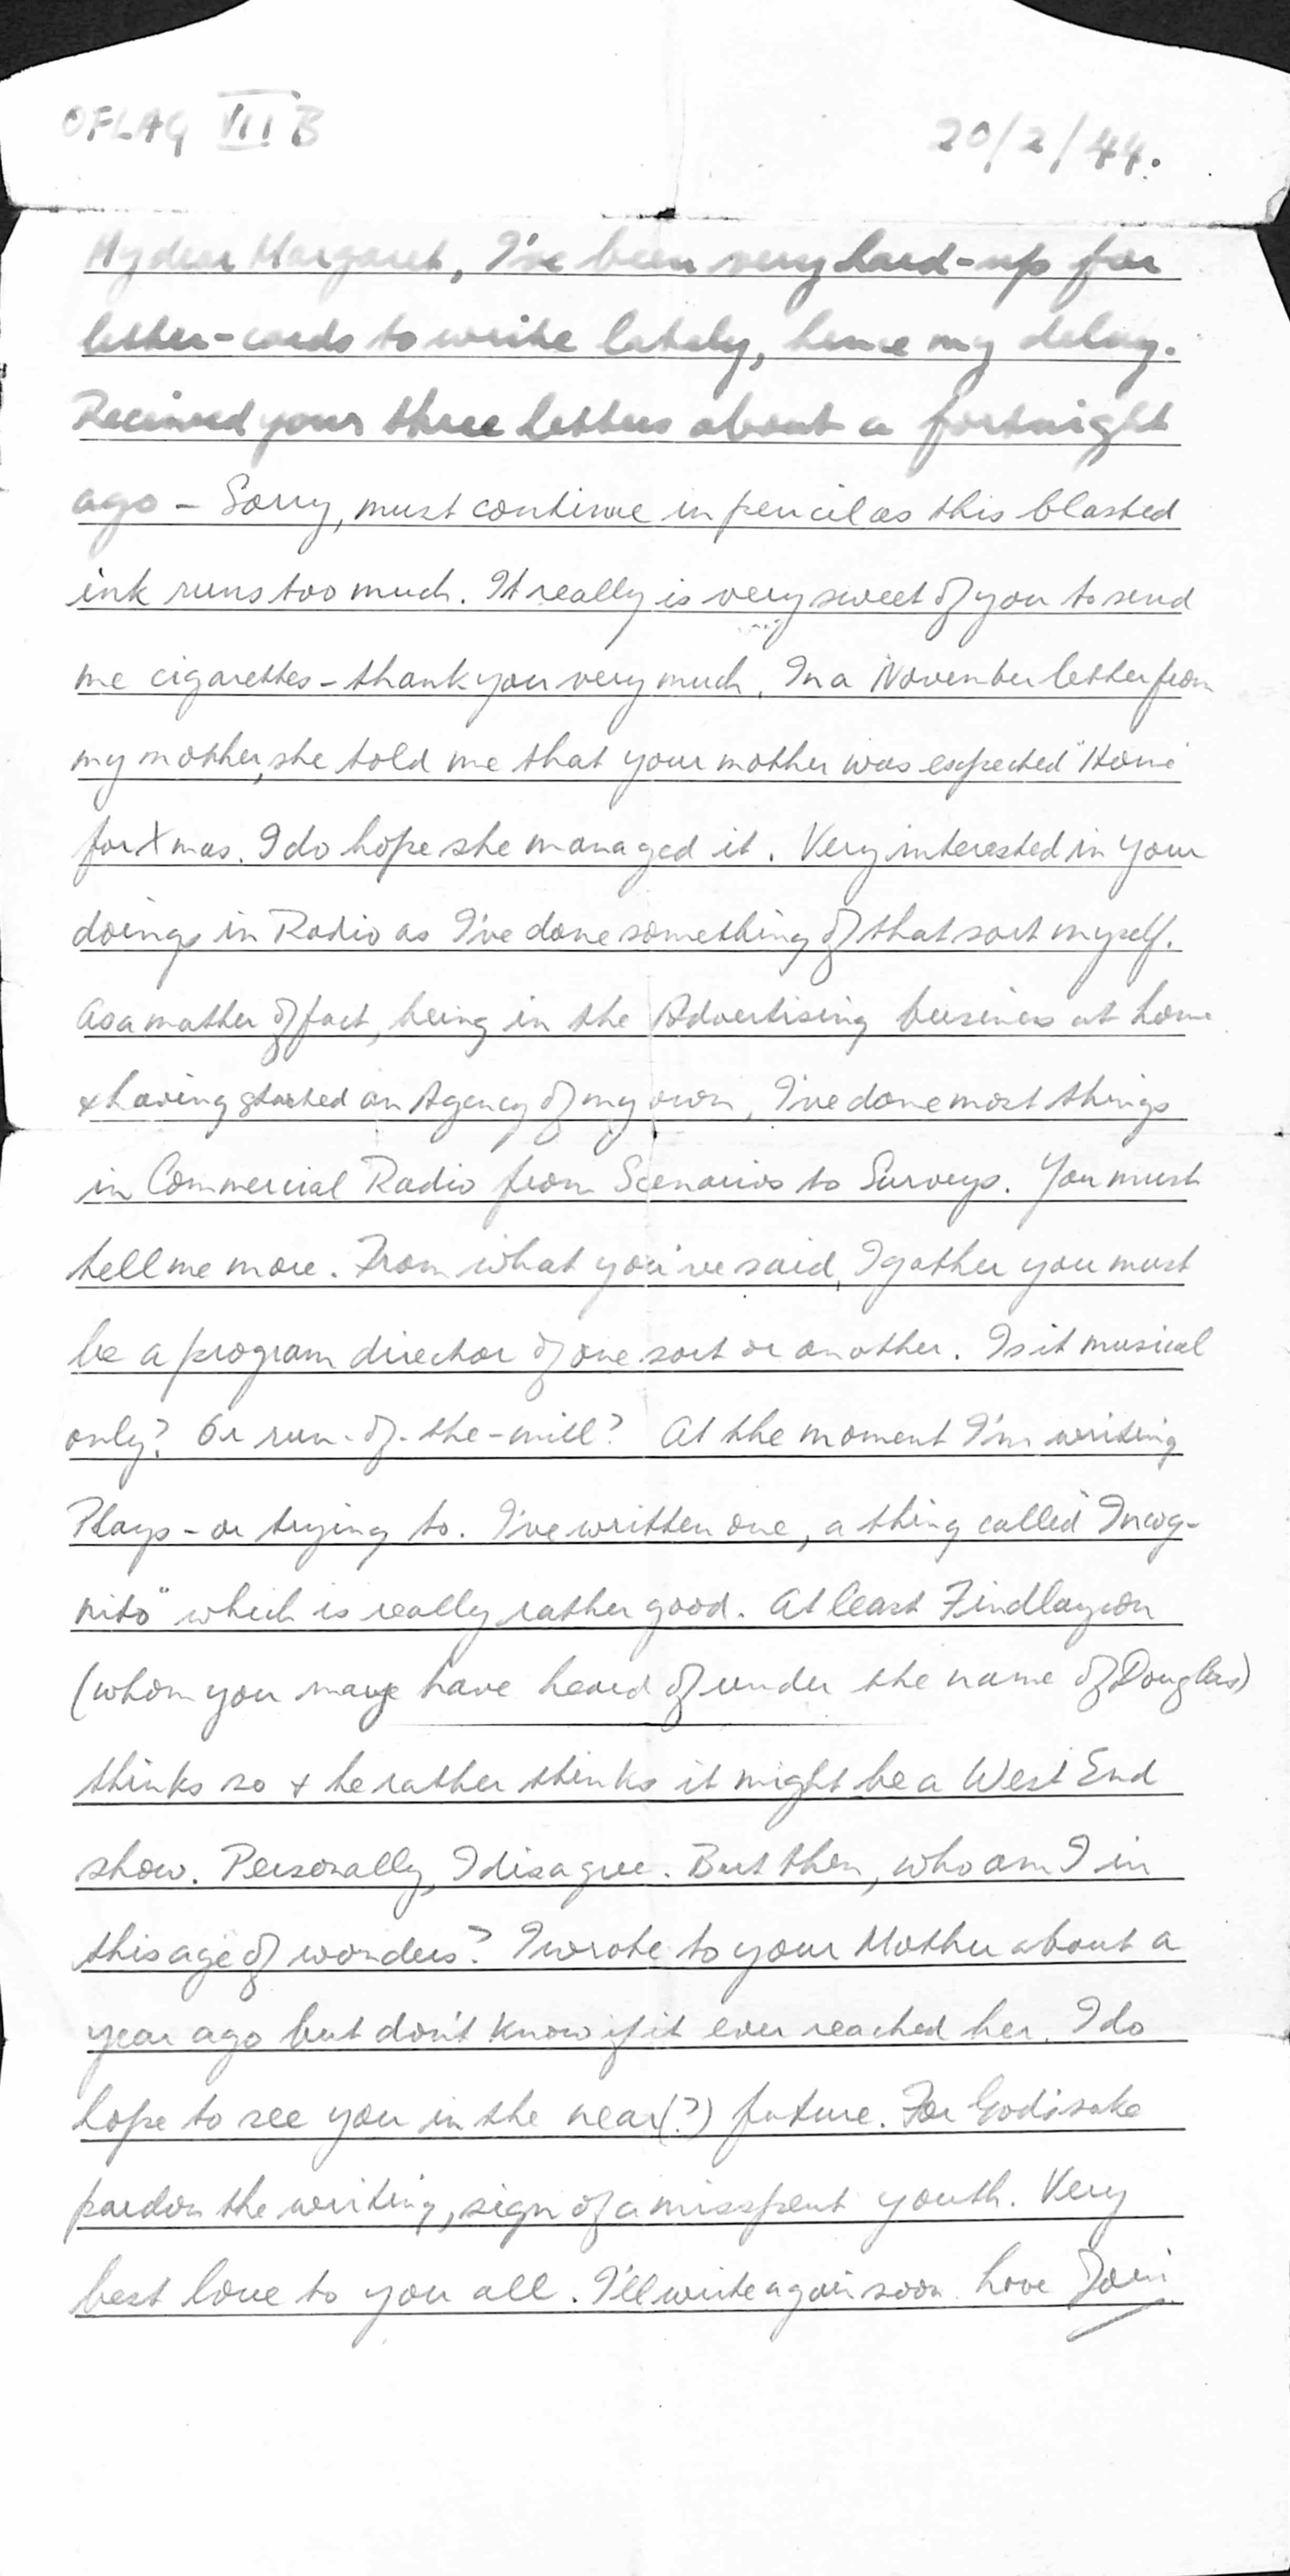 OFLAG VII B 20/2/44.
My dear Margaret, I've been very hard-up for
letter-cards to write lately, hence my delay.
Received your three letters about a fortnight
ago – Sorry, must continue in pencil as this blasted
ink runs too much. It really is very sweet of you to send
me cigarettes – thank you very much. In a November letter from
my mother, she told me that your mother was expected "Home"
for Xmas. I do hope she managed it. Very interested in your
doings in Radio as I've done something of that sort myself.
As a matter of fact, being in the Advertising business at home
& having started an Agency of my own, I've done most things
in Commercial Radio from Scenarios to Surveys. You must
tell me more. From what you've said, I gather you must
be a program director of one sort or another. Is it musical
only? Or run-of-the-mill? At the moment I'm writing
Plays – or trying to. I've written one, a thing called "Incog-
nito" which is really rather good. At least Findlayson
(whom you may have heard of under the name of Douglas)
thinks so & he rather thinks it might be a West End
show. Personally, I disagree. But then, who am I in
this age of wonders? I wrote to your Mother about a
year ago but don't know if it ever reached her. I do
hope to see you in the near(?) future. For God's sake
pardon the writing, sign of a misspent youth. Very
best love to you all. I'll write again soon. Love